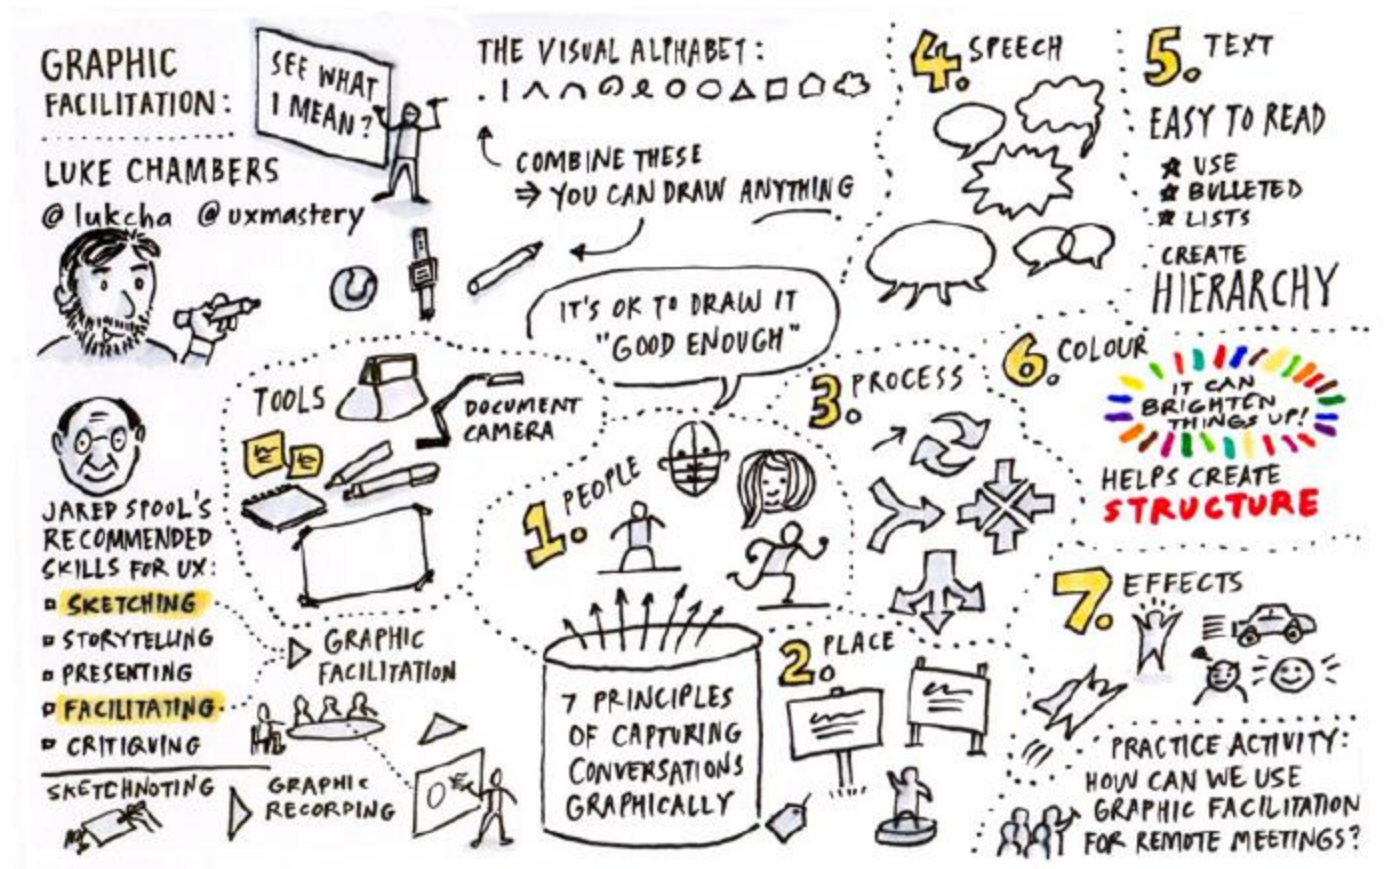 GRAPHIC
FACILITATION:
LUKE CHAMBERS
@lukcha @uxmastery
SEE WHAT
I MEAN?
THE VISUAL ALPHABET:
COMBINE THESE
⇒ YOU CAN DRAW ANYTHING
IT'S OK TO DRAW IT
"GOOD ENOUGH"
TOOLS
DOCUMENT
CAMERA
JARED SPOOL'S
RECOMMENDED
SKILLS FOR UX:
SKETCHING
STORYTELLING
PRESENTING
FACILITATING
CRITIQUING
GRAPHIC
FACILITATION
SKETCHNOTING
GRAPHIC
RECORDING
7 PRINCIPLES
OF CAPTURING
CONVERSATIONS
GRAPHICALLY
1. PEOPLE
2. PLACE
3. PROCESS
4. SPEECH
5. TEXT
EASY TO READ
★ USE
★ BULLETED
★ LISTS
CREATE
HIERARCHY
6. COLOUR
IT CAN
BRIGHTEN
THINGS UP!
HELPS CREATE
STRUCTURE
7. EFFECTS
PRACTICE ACTIVITY:
HOW CAN WE USE
GRAPHIC FACILITATION
FOR REMOTE MEETINGS?